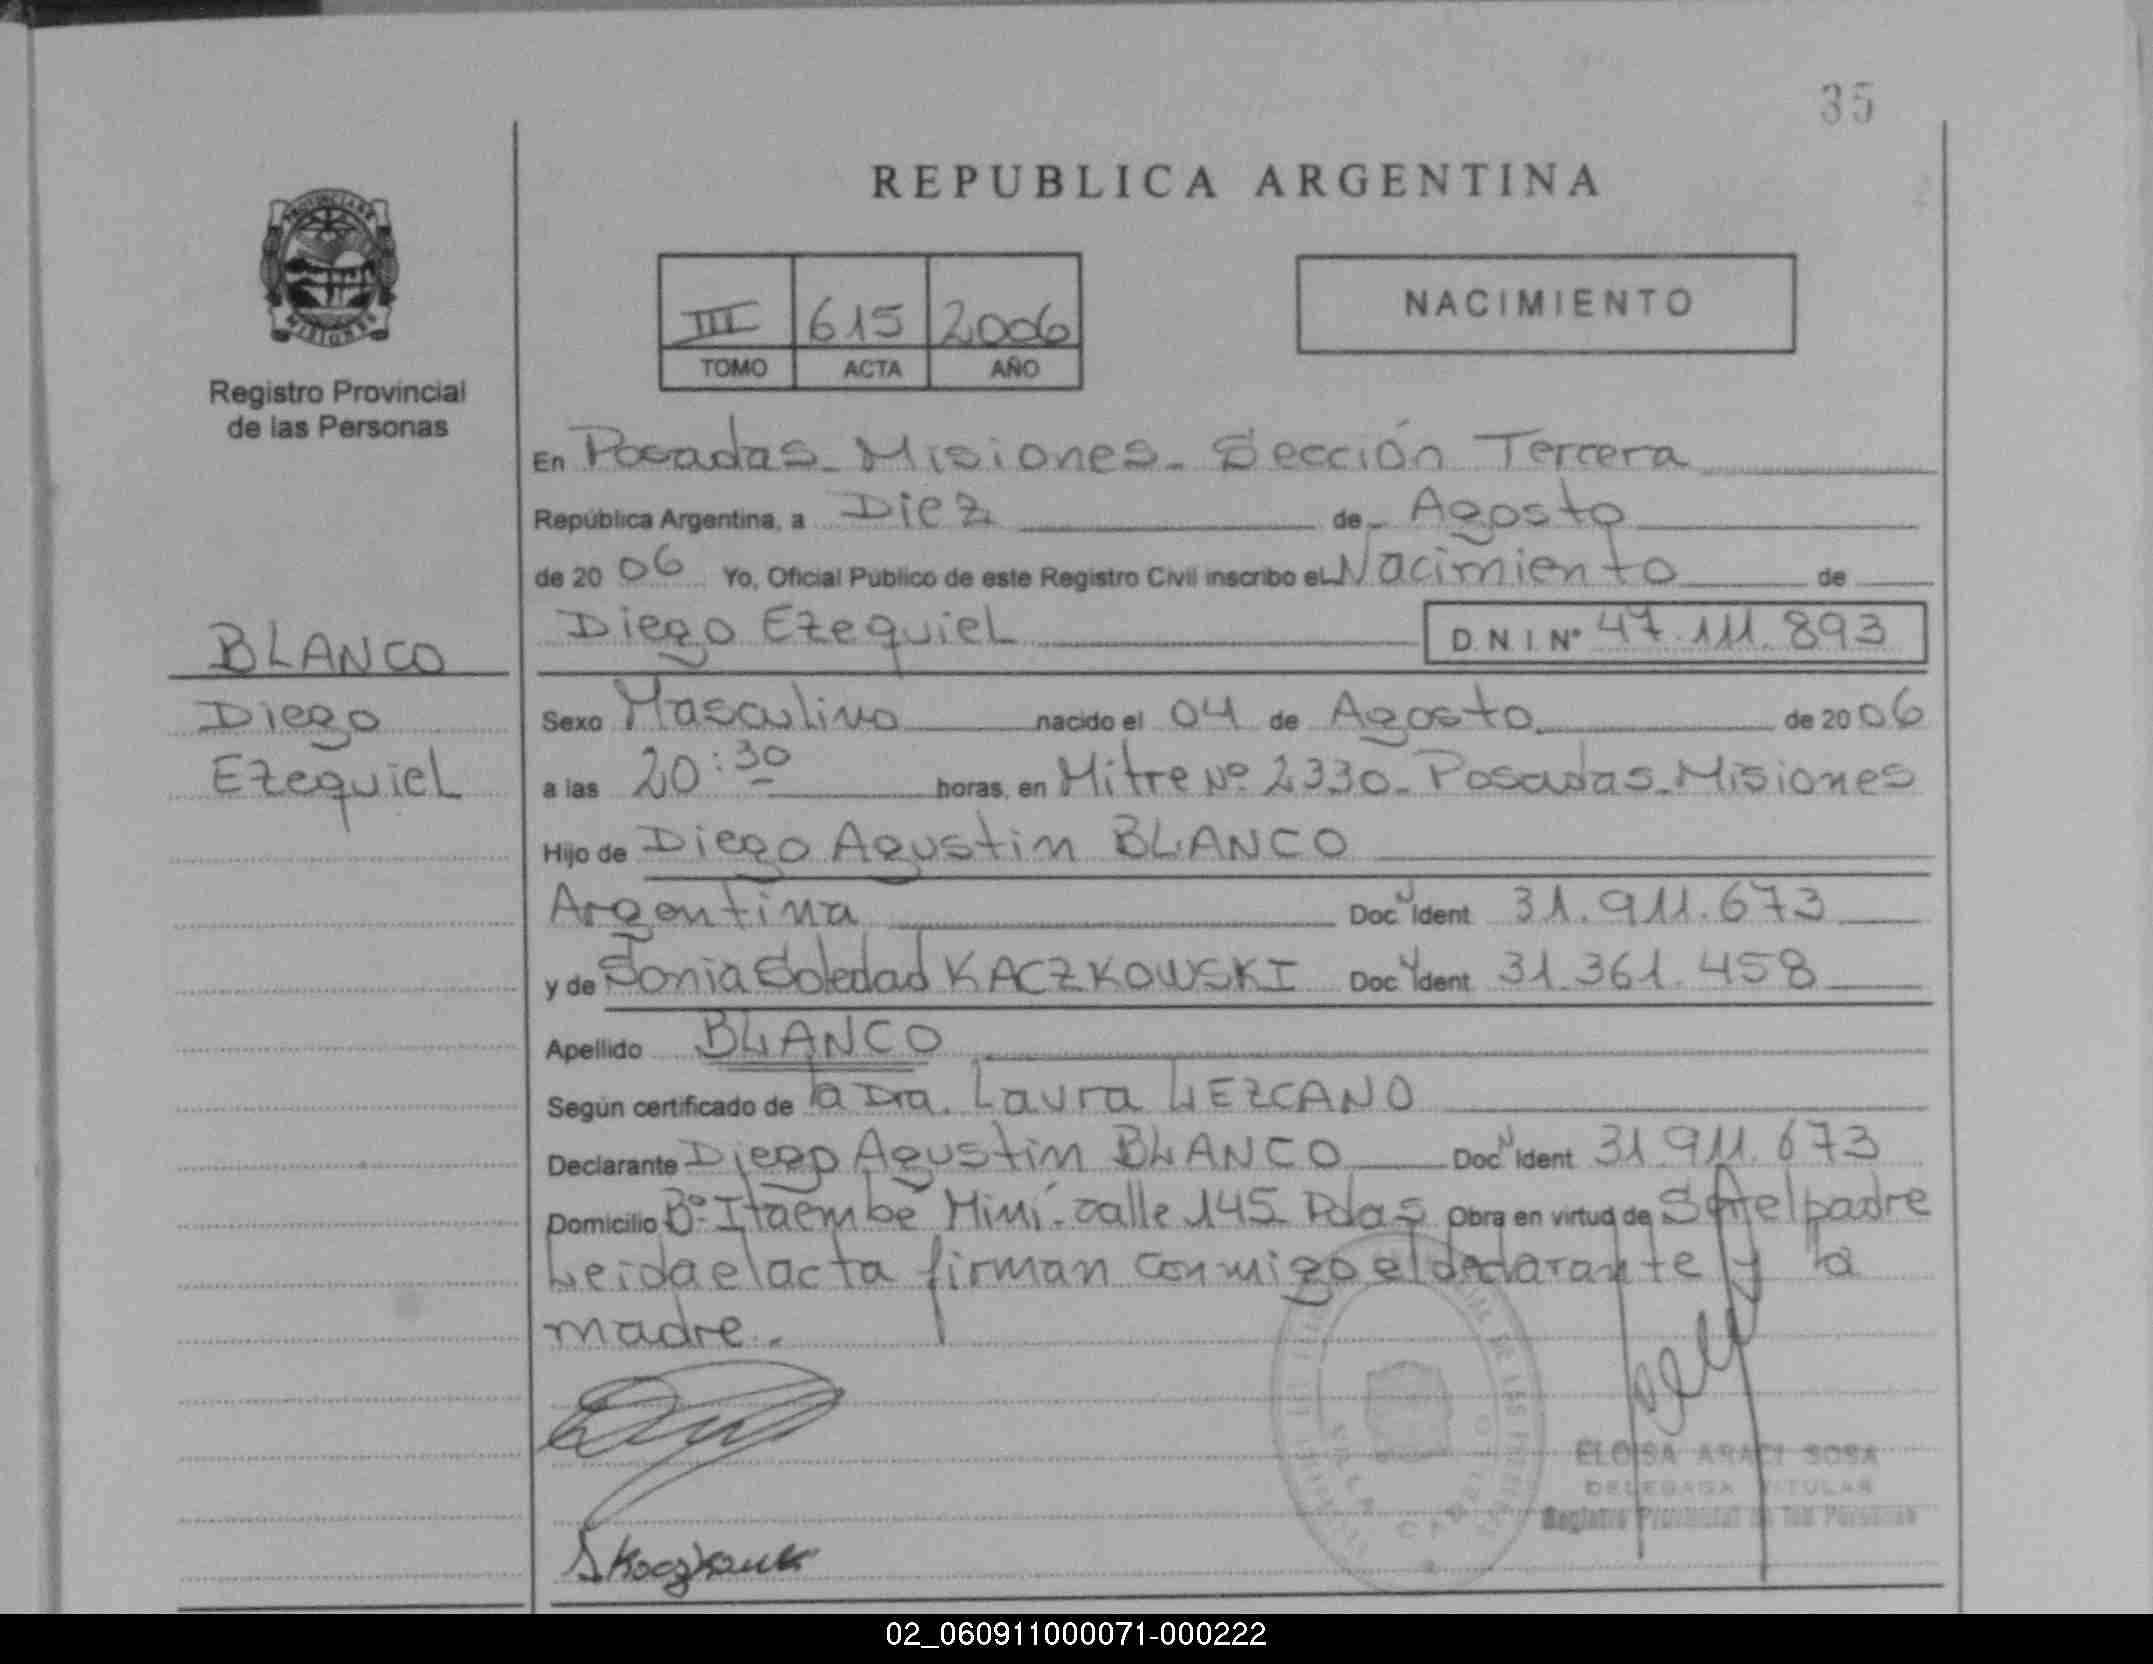 35
REPUBLICA ARGENTINA
PROVINCIA DE
MISIONES
Registro Provincial
de las Personas
III 615 2006
TOMO ACTA AÑO
NACIMIENTO
En Posadas - Misiones - Sección Tercera
República Argentina, a Diez de Agosto
de 20 06 Yo, Oficial Público de este Registro Civil inscribo el Nacimiento de
Diego EzequieL D.N.I. Nº 47.111.893
BLANCO
Diego
EzequieL
Sexo Masculino nacido el 04 de Agosto de 20 06
a las 20:30 horas, en Mitre Nº 2330 - Posadas - Misiones
Hijo de Diego Agustin BLANCO
Argentina Doc. Ident 31.911.673
y de Sonia Soledad KACZKOWSKI Doc. Ident 31.361.458
Apellido BLANCO
Según certificado de la Dra. Laura LEZCANO
Declarante Diego Agustin BLANCO Doc. Ident 31.911.673
Domicilio Bº Itaembé Miní - calle 145 Pdas Obra en virtud de Ser el padre
Leida el acta firman conmigo el declarante y la
madre.
ELOISA ARACI SOSA
DELEGADA TITULAR
Registro Provincial de las Personas
02_060911000071-000222